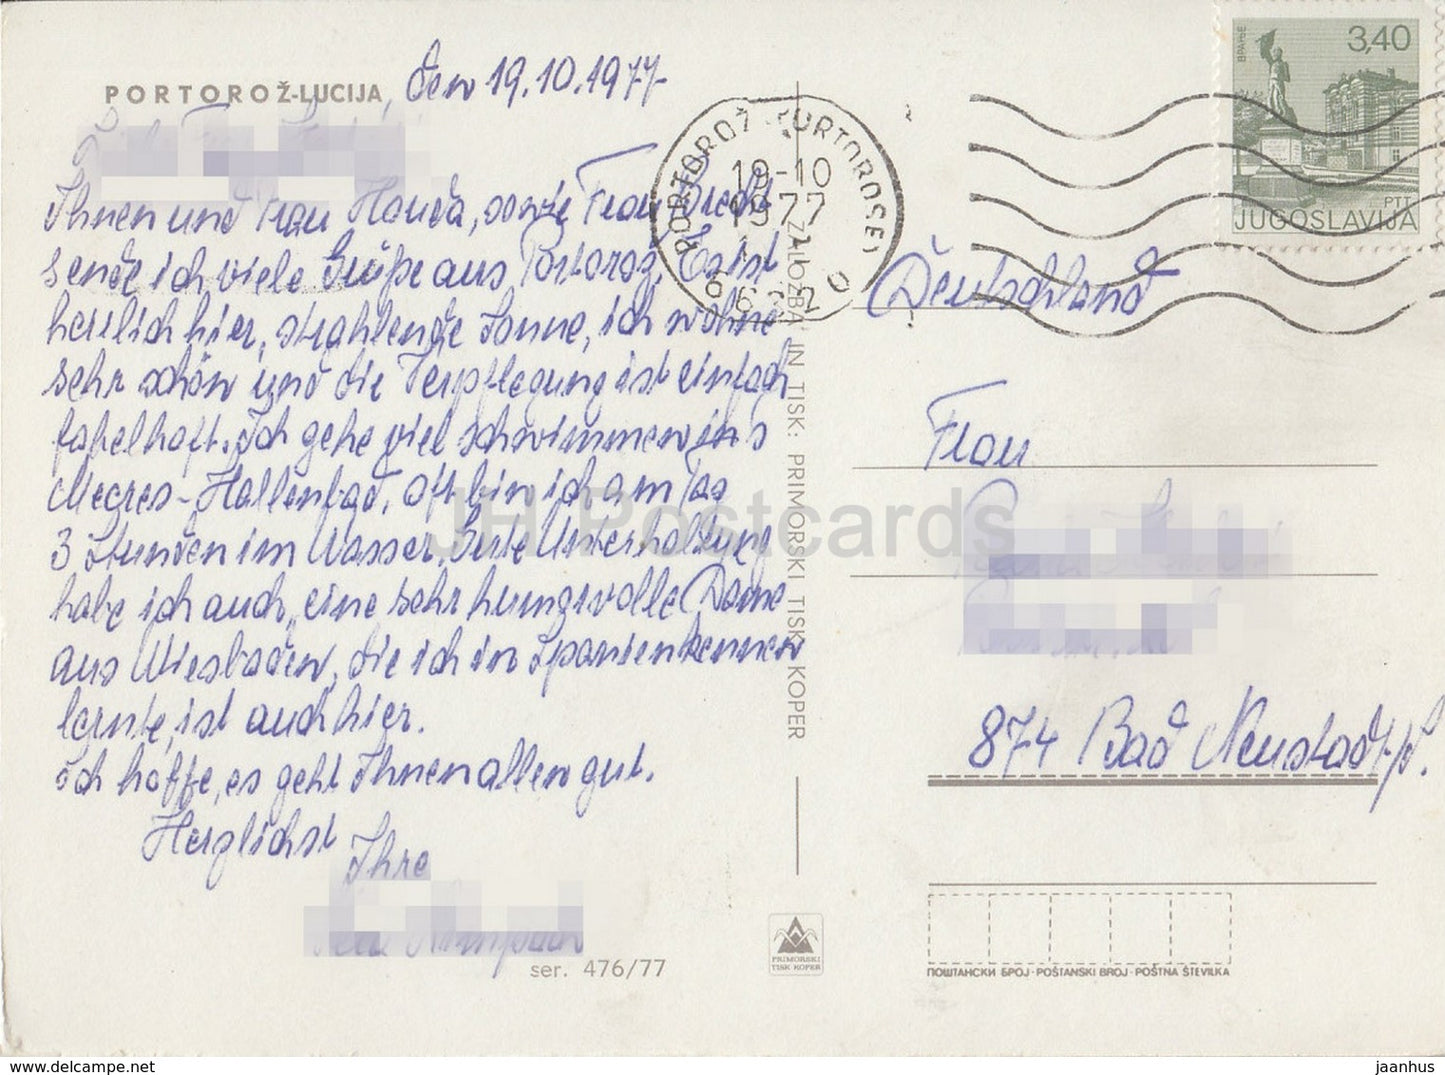 PORTOROŽ-LUCIJA, den 19.10.1977
Ihnen und Frau Honda, sowie Frau
sende ich viele Grüße aus Portorož. Es ist
herrlich hier, strahlende Sonne, ich wohne
sehr schön und die Verpflegung ist einfach
fabelhaft. Ich gehe viel schwimmen in's
Meeres-Hallenbad. Oft bin ich am Tag
3 Stunden im Wasser. Gute Unterhaltung
habe ich auch, eine sehr humorvolle Dame
aus Wiesbaden, die ich in Spanien kennen
lernte, ist auch hier.
Ich hoffe, es geht Ihnen allen gut.
Herzlichst
Ihre
ser. 476/77
ZALOŽBA IN TISK: PRIMORSKI TISK KOPER
PRIMORSKI
TISK KOPER
PORTOROŽ PORTOROSE
19-10
1977
ВРАЊЕ
3,40
PTT
JUGOSLAVIJA
Deutschland
Frau
874 Bad Neustadt/S.
ПОШТАНСКИ БРОЈ · POŠTANSKI BROJ · POŠTNA ŠTEVILKA
JH Postcards
https://www.ebay.com
jaanhus